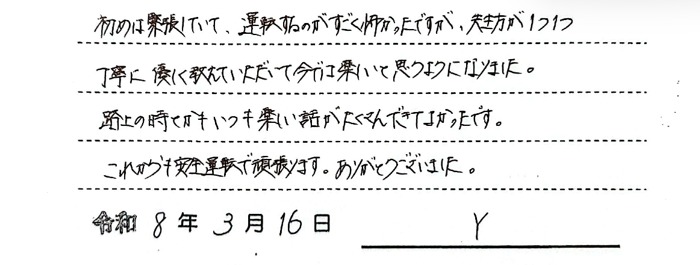 初めは緊張していて、運転するのがすごく怖かったですが、先生方が1つ1つ
丁寧に優しく教えていただいて今では楽しいと思うようになりました。
路上の時とかもいつも楽しい話がたくさんできてよかったです。
これからも安全運転で頑張ります。ありがとうございました。
令和 8 年 3 月 16 日 Y